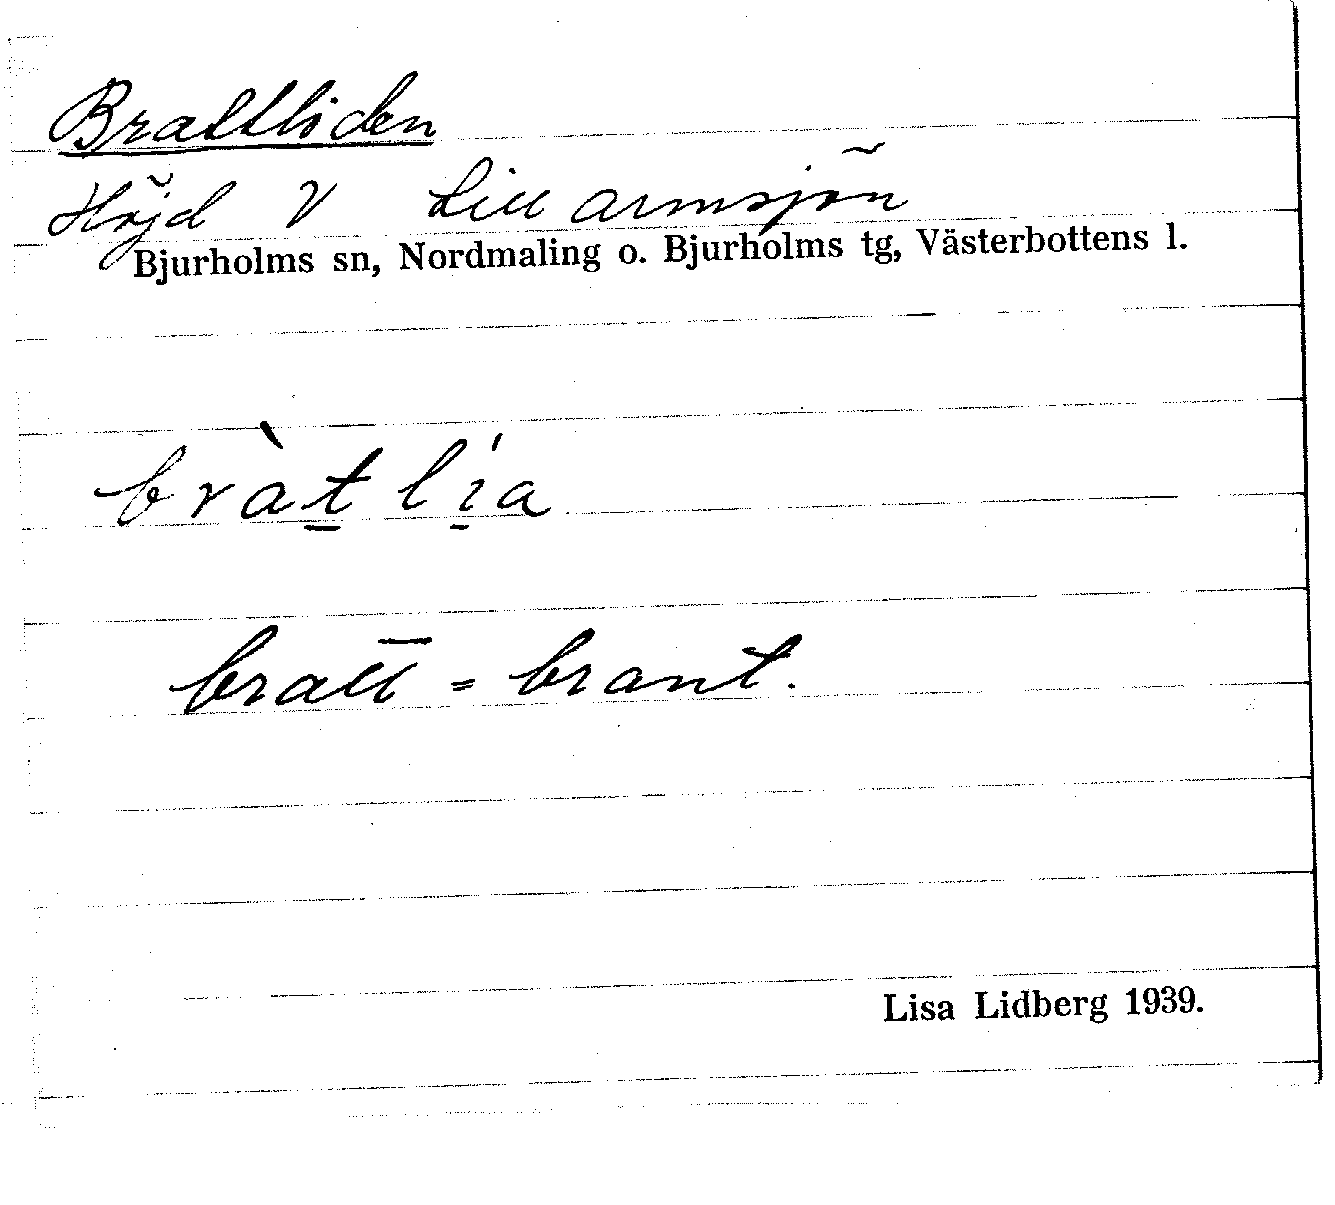 Brattliden
Höjd V Lill Armsjön
Bjurholms sn, Nordmaling o. Bjurholms tg, Västerbottens l.
bràt̲ lí̲a
bratt = brant.
Lisa Lidberg 1939.